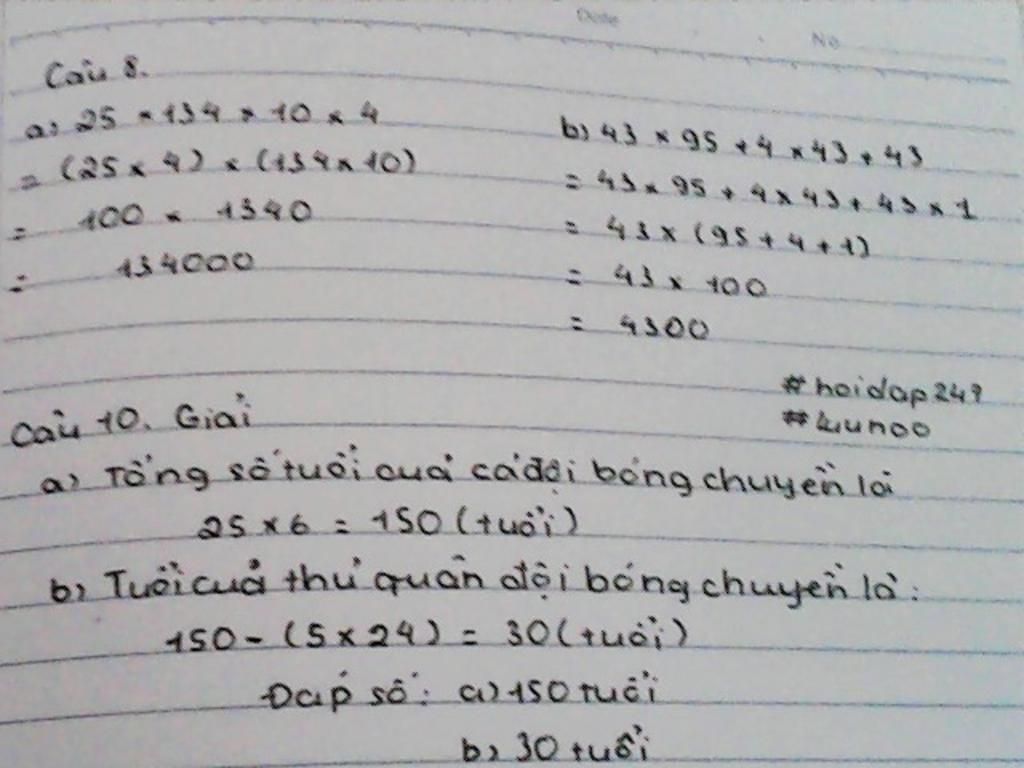 Date
No
Câu 8.
a) 25 × 134 × 10 × 4
= (25 × 4) × (134 × 10)
= 100 × 1340
= 134000
b) 43 × 95 + 4 × 43 + 43
= 43 × 95 + 4 × 43 + 43 × 1
= 43 × (95 + 4 + 1)
= 43 × 100
= 4300
#hoidap247
Câu 10. Giải
a) Tổng số tuổi của cả đội bóng chuyền là
25 × 6 = 150 (tuổi)
b) Tuổi của thủ quân đội bóng chuyền là:
150 - (5 × 24) = 30 (tuổi)
Đáp số: a) 150 tuổi
b) 30 tuổi